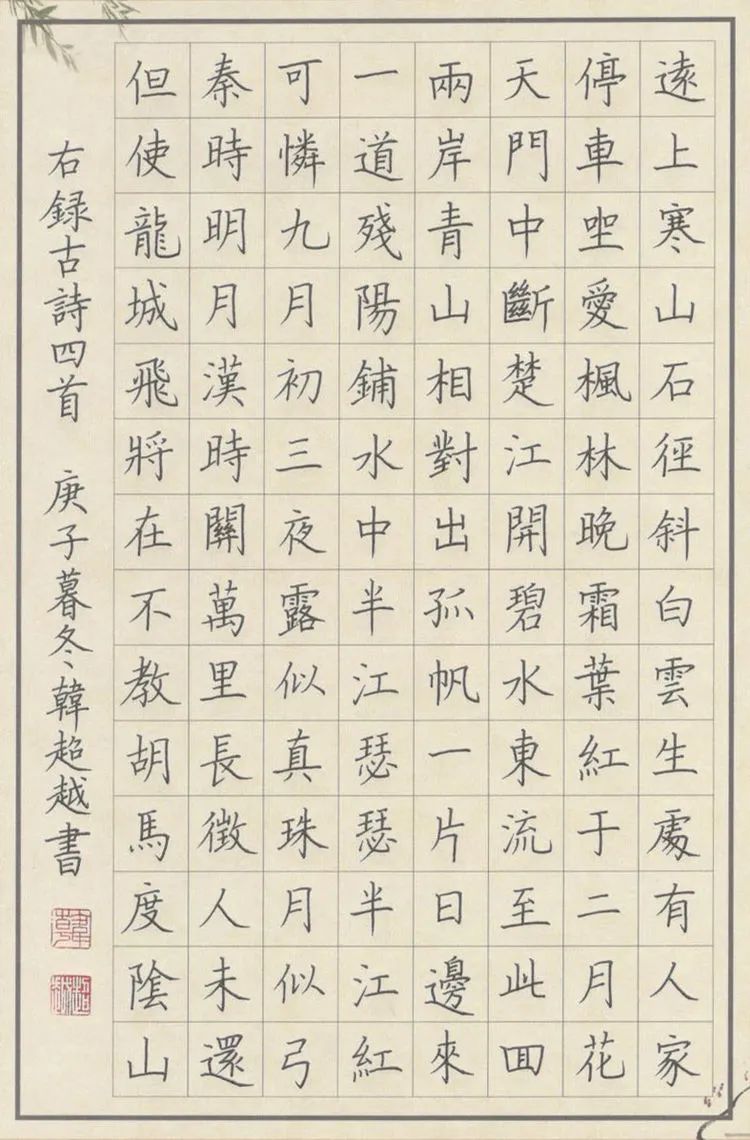 遠上寒山石徑斜白雲生處有人家
停車坐愛楓林晚霜葉紅于二月花
天門中斷楚江開碧水東流至此回
兩岸青山相對出孤帆一片日邊來
一道殘陽鋪水中半江瑟瑟半江紅
可憐九月初三夜露似真珠月似弓
秦時明月漢時關萬里長徵人未還
但使龍城飛將在不教胡馬度陰山
右録古詩四首 庚子暮冬韓超越書